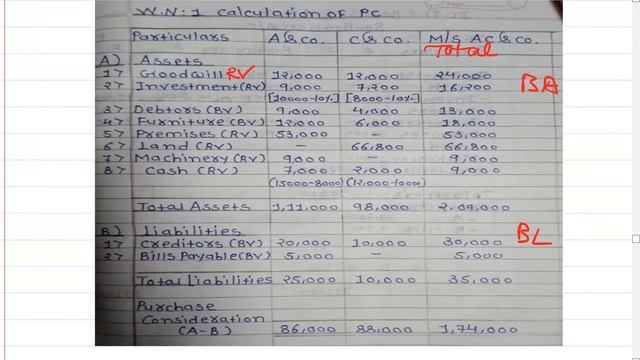 W.N:1 Calculation of PC
Particulars A & Co. C & Co. M/S. AC & Co.
Total
A) Assets
1) Goodwill RV 12,000 12,000 24,000
2) Investment (RV) 9,000 7,200 16,200 BA
[10000-10%] [8000-10%]
3) Debtors (BV) 9,000 4,000 13,000
4) Furniture (BV) 12,000 6,000 18,000
5) Premises (RV) 53,000 - 53,000
6) Land (RV) - 66,800 66,800
7) Machinery (RV) 9,000 - 9,000
8) Cash (RV) 7,000 2,000 9,000
(15000-8000) (12,000-10000)
Total Assets 1,11,000 98,000 2,09,000
B) Liabilities BL
1) Creditors (BV) 20,000 10,000 30,000
2) Bills Payable (BV) 5,000 - 5,000
Total Liabilities 25,000 10,000 35,000
Purchase
Consideration
(A-B) 86,000 88,000 1,74,000